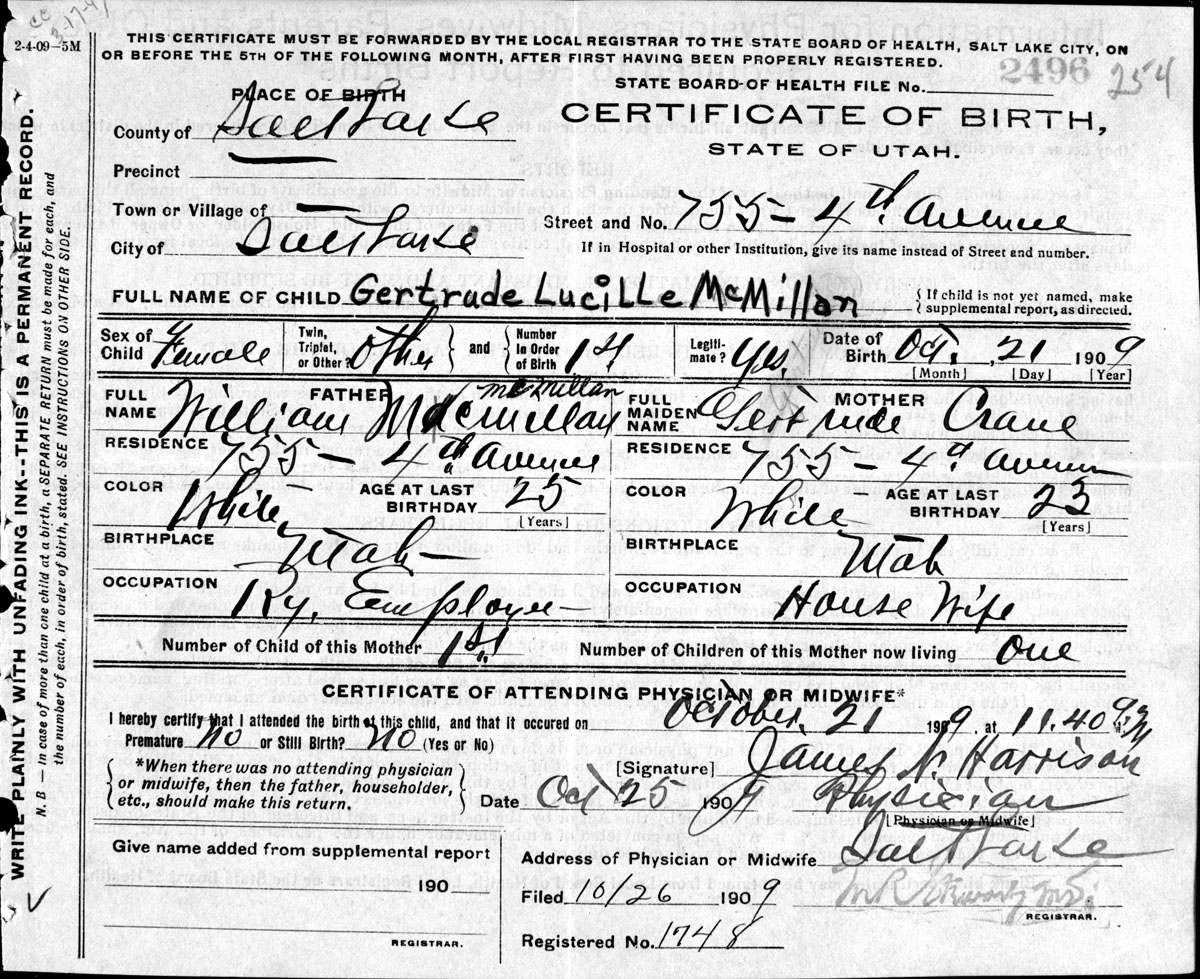 2-4-09-5M
THIS CERTIFICATE MUST BE FORWARDED BY THE LOCAL REGISTRAR TO THE STATE BOARD OF HEALTH, SALT LAKE CITY, ON
OR BEFORE THE 5TH OF THE FOLLOWING MONTH, AFTER FIRST HAVING BEEN PROPERLY REGISTERED.
2496 254
STATE BOARD OF HEALTH FILE No.
PLACE OF BIRTH
CERTIFICATE OF BIRTH,
County of Salt Lake
STATE OF UTAH.
Precinct
Town or Village of
Street and No. 755-4th Avenue
City of Salt Lake
If in Hospital or other Institution, give its name instead of Street and number.
FULL NAME OF CHILD Gertrude Lucille McMillan { If child is not yet named, make supplemental report, as directed.
Sex of Child Female Twin, Triplet, or Other? Other and Number in Order of Birth 1st Legiti-mate? Yes. Date of Birth Oct. 21 1909
[Month] [Day] [Year]
FATHER
McMillan
FULL NAME William MacMillan
MOTHER
FULL MAIDEN NAME Gertrude Crane
RESIDENCE 755-4th Avenue
RESIDENCE 755-4th Avenue
COLOR White AGE AT LAST BIRTHDAY 25 [Years]
COLOR White AGE AT LAST BIRTHDAY 23 [Years]
BIRTHPLACE Utah
BIRTHPLACE Utah
OCCUPATION Ry. Employe
OCCUPATION House Wife
Number of Child of this Mother 1st Number of Children of this Mother now living One
CERTIFICATE OF ATTENDING PHYSICIAN OR MIDWIFE*
I hereby certify that I attended the birth of this child, and that it occured on October. 21 1909, at 11.40
Premature No or Still Birth? No (Yes or No)
*When there was no attending physician
or midwife, then the father, householder,
etc., should make this return.
[Signature] James N. Harrison
Date Oct 25 1909 Physician
[Physician or Midwife]
Give name added from supplemental report
190
REGISTRAR.
Address of Physician or Midwife Salt Lake
Filed 10/26 1909
REGISTRAR.
Registered No. 1748
WRITE PLAINLY WITH UNFADING INK--THIS IS A PERMANENT RECORD.
N. B. — In case of more than one child at a birth, a SEPARATE RETURN must be made for each, and
the number of each, in order of birth, stated. SEE INSTRUCTIONS ON OTHER SIDE.